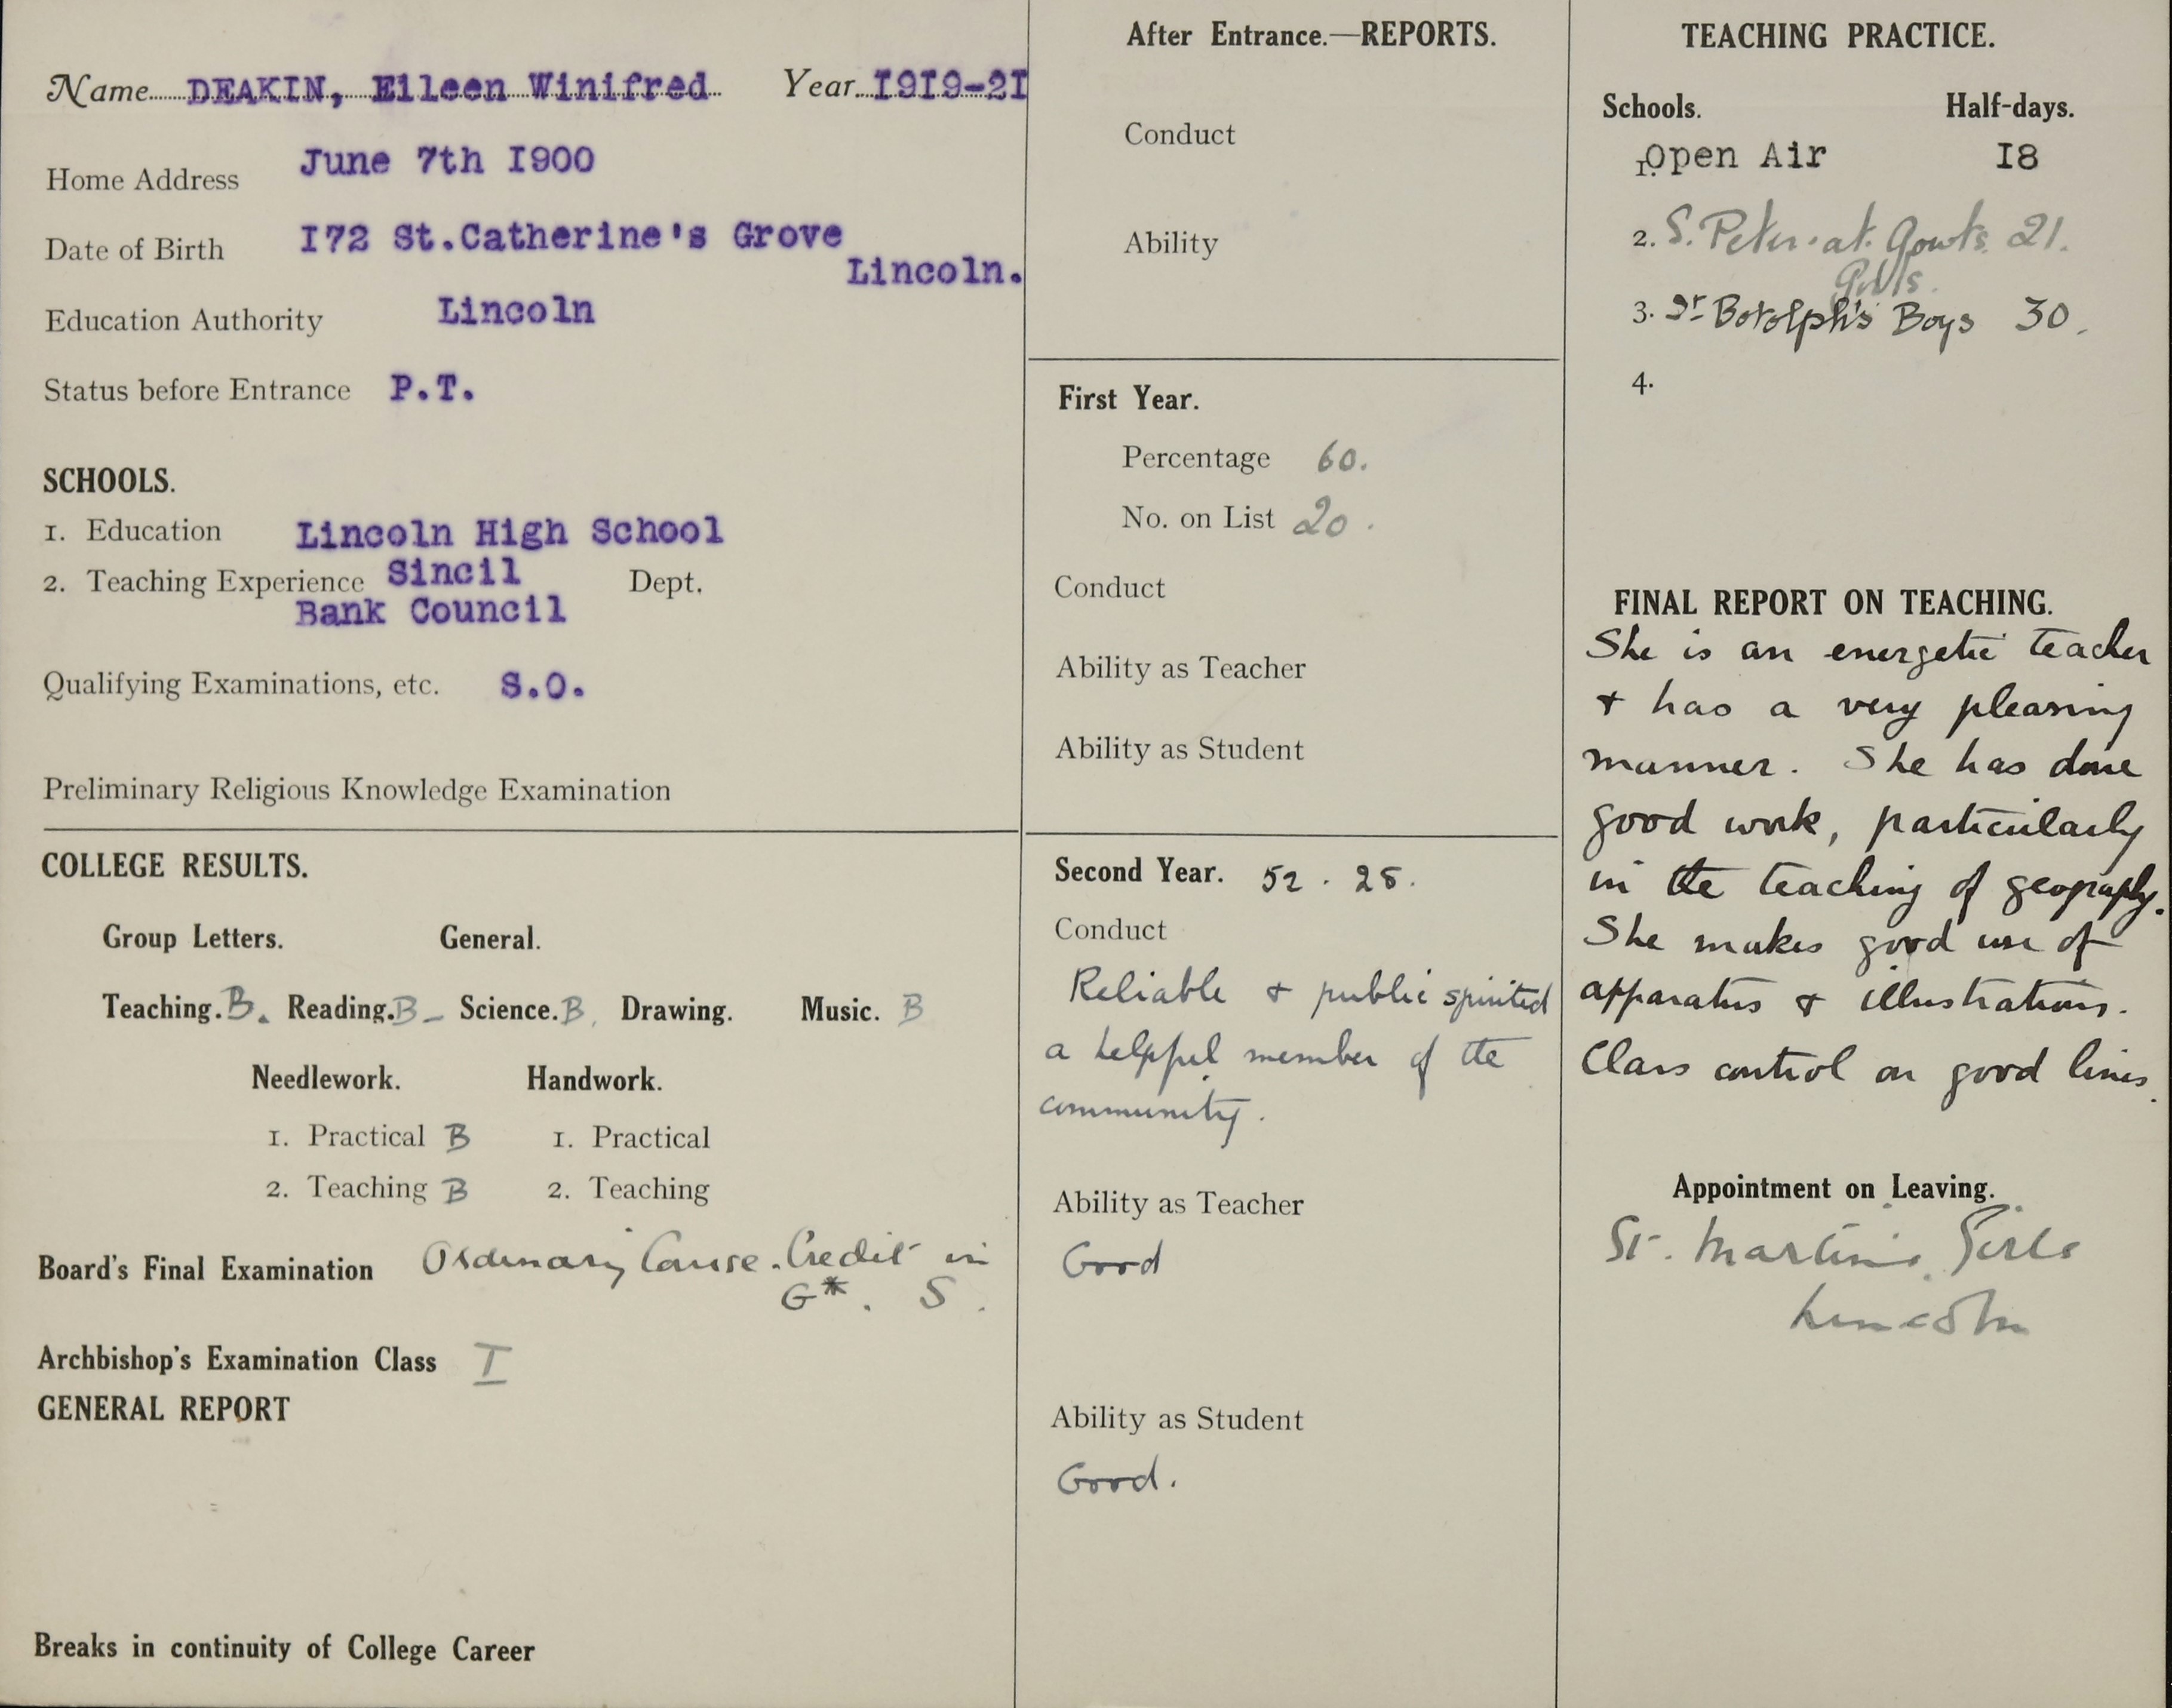 Name DEAKIN, Eileen Winifred Year I9I9-2I
Home Address June 7th I900
Date of Birth I72 St.Catherine's Grove
Lincoln.
Education Authority Lincoln
Status before Entrance P.T.
SCHOOLS.
1. Education Lincoln High School
2. Teaching Experience Sincil Dept.
Bank Council
Qualifying Examinations, etc. S.O.
Preliminary Religious Knowledge Examination
COLLEGE RESULTS.
Group Letters. General.
Teaching. B. Reading. B- Science. B. Drawing. Music. B
Needlework. Handwork.
1. Practical B 1. Practical
2. Teaching B 2. Teaching
Board's Final Examination Ordinary Course. Credit in
G*. S.
Archbishop's Examination Class I
GENERAL REPORT
Breaks in continuity of College Career
After Entrance.—REPORTS.
Conduct
Ability
First Year.
Percentage 60.
No. on List 20.
Conduct
Ability as Teacher
Ability as Student
Second Year. 52. 28.
Conduct
Reliable & public spirited
a helpful member of the
community.
Ability as Teacher
Good
Ability as Student
Good.
TEACHING PRACTICE.
Schools. Half-days.
1. Open Air I8
2. S. Peter. at. Gowts. 21.
Girls.
3. St Botolph's Boys 30.
4.
FINAL REPORT ON TEACHING.
She is an energetic teacher
& has a very pleasing
manner. She has done
good work, particularly
in the teaching of geography.
She makes good use of
apparatus & illustrations.
Class control on good lines.
Appointment on Leaving.
St. Martin's Girls
Lincoln